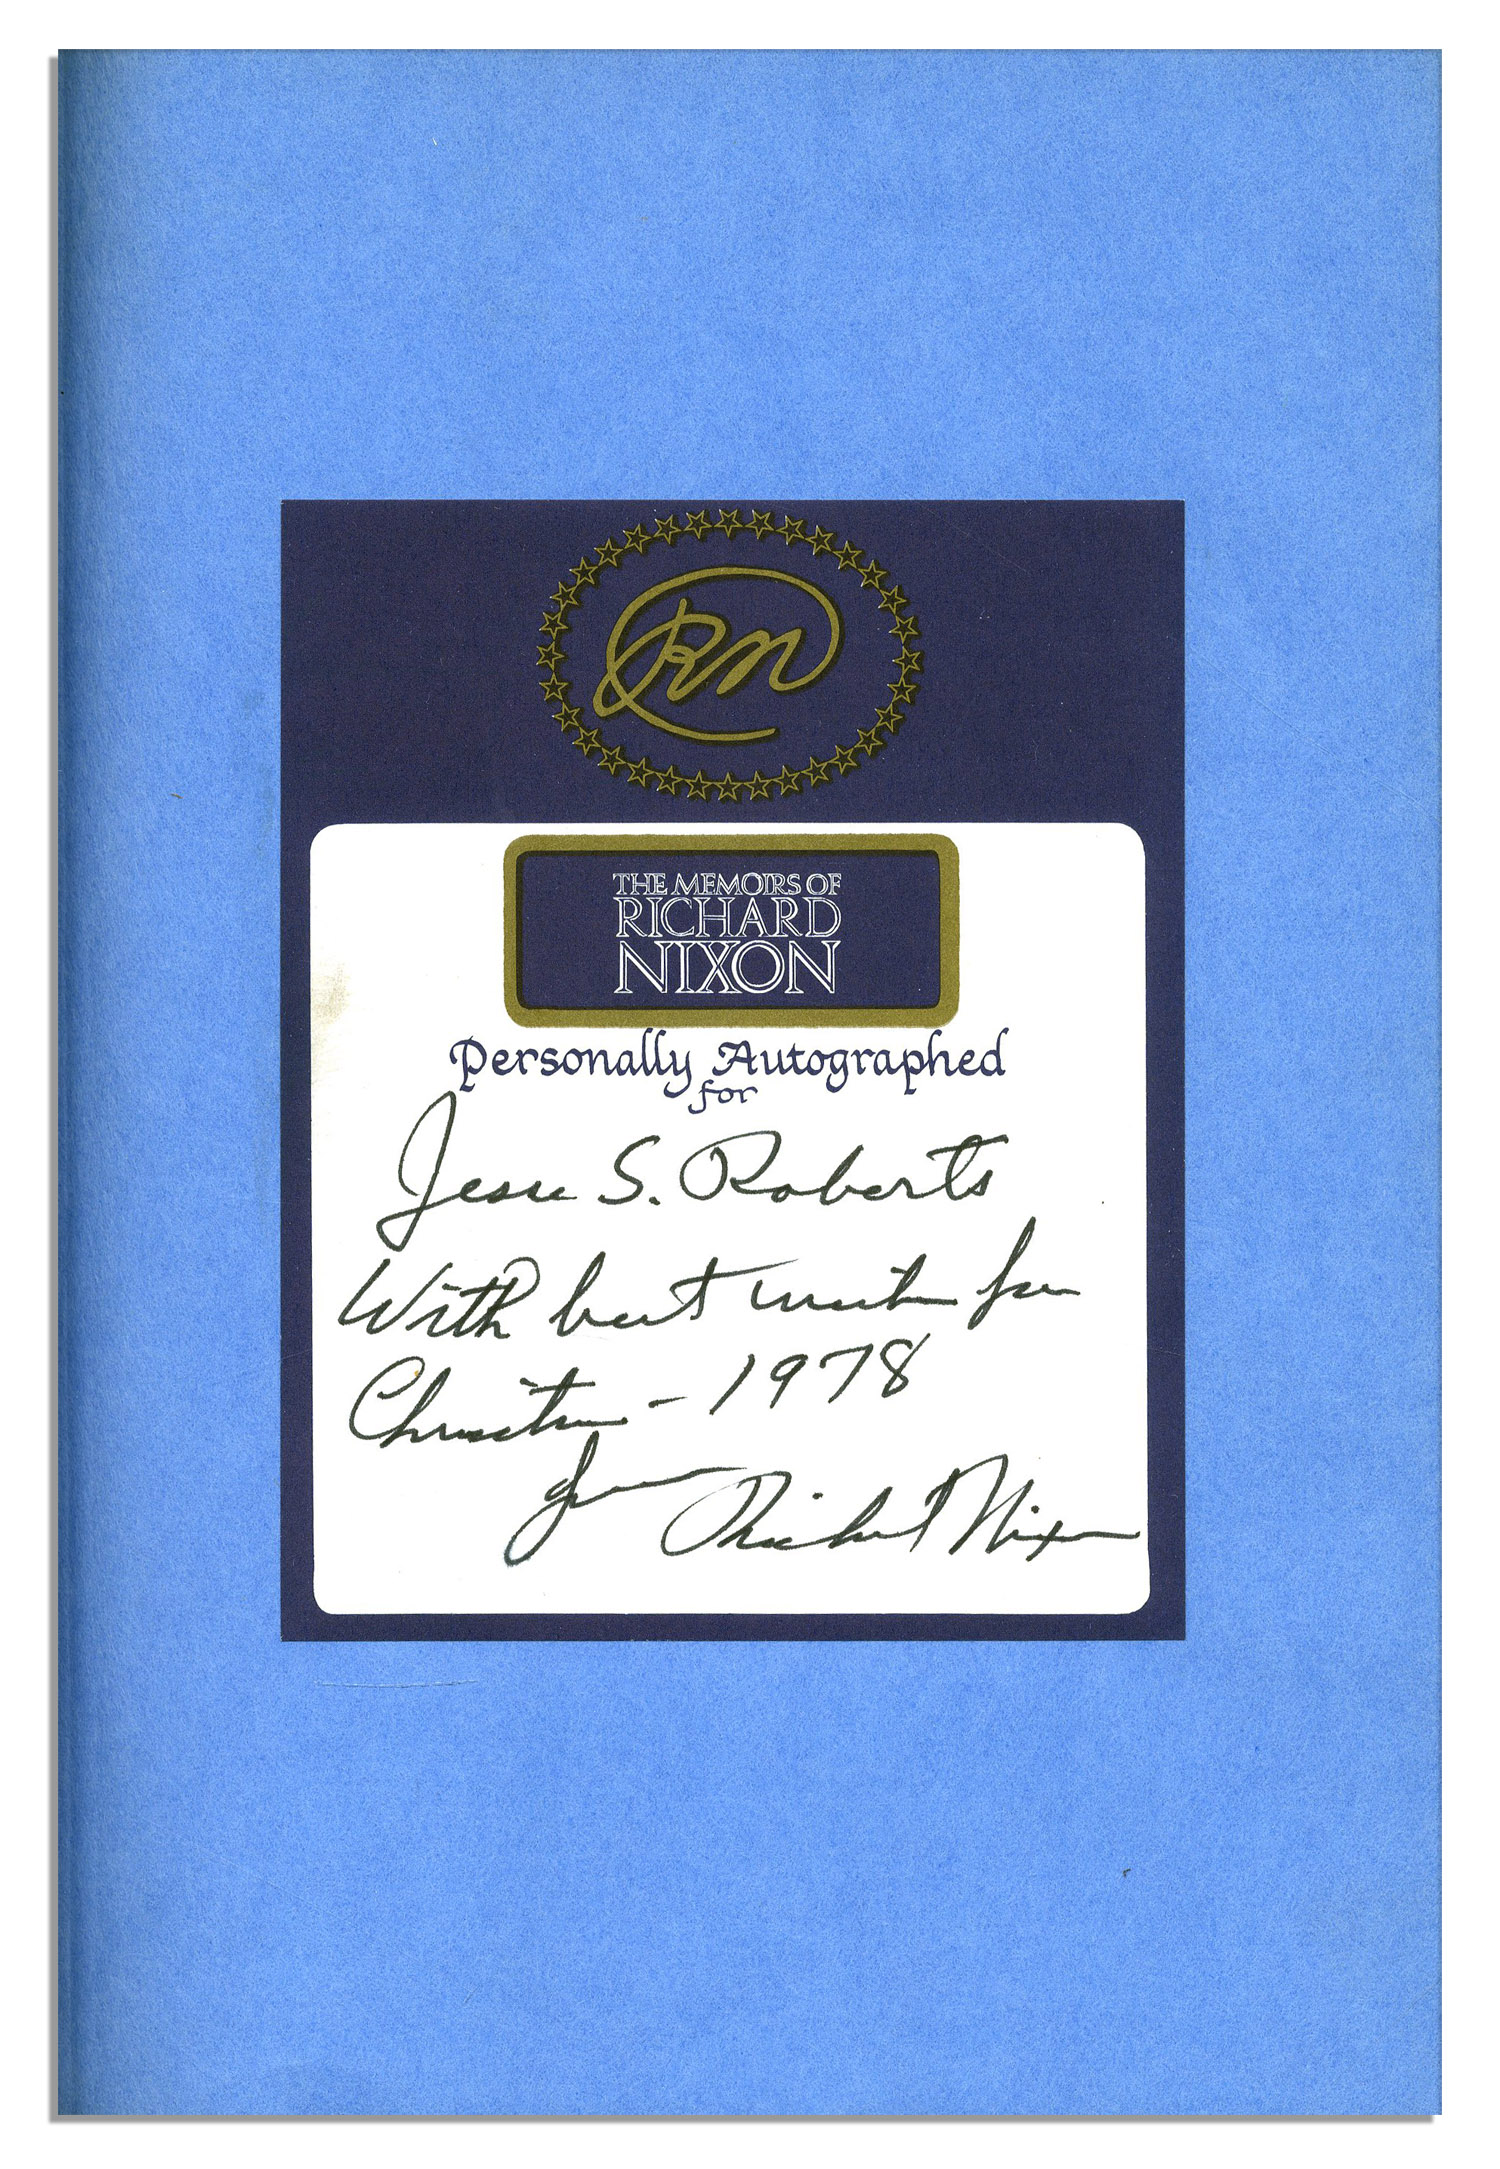 RN
THE MEMOIRS OF
RICHARD
NIXON
Personally Autographed
for
Jesse S. Roberts
With best wishes for
Christmas - 1978
from Richard Nixon